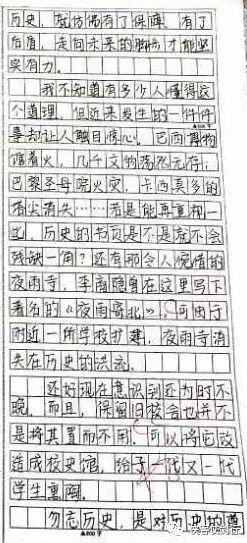 历史，就仿佛有了保障，有了
后盾，走向未来的脚步才能坚
实有力。
我不知道有多少人懂得这
个道理，但近来发生的一件件
事却让人触目惊心。巴西博物
馆着火，几千文物荡然无存；
巴黎圣母院火灾，卡西莫多的
塔尖消失……若是能再重视一
些，历史的书页是不是就不会
残缺一角？还有那令人惋惜的
夜雨寺，李商隐曾在这里写下
著名的《夜雨寄北》，可由于
附近一所学校扩建，夜雨寺消
失在历史的洪流。
还好现在意识到还为时不
晚，而且，保留旧校舍也并不
是将其置而不用，可以将它改
造成校史馆，给予一代又一代
学生重阅。
勿忘历史，是对历史的尊
▲800字